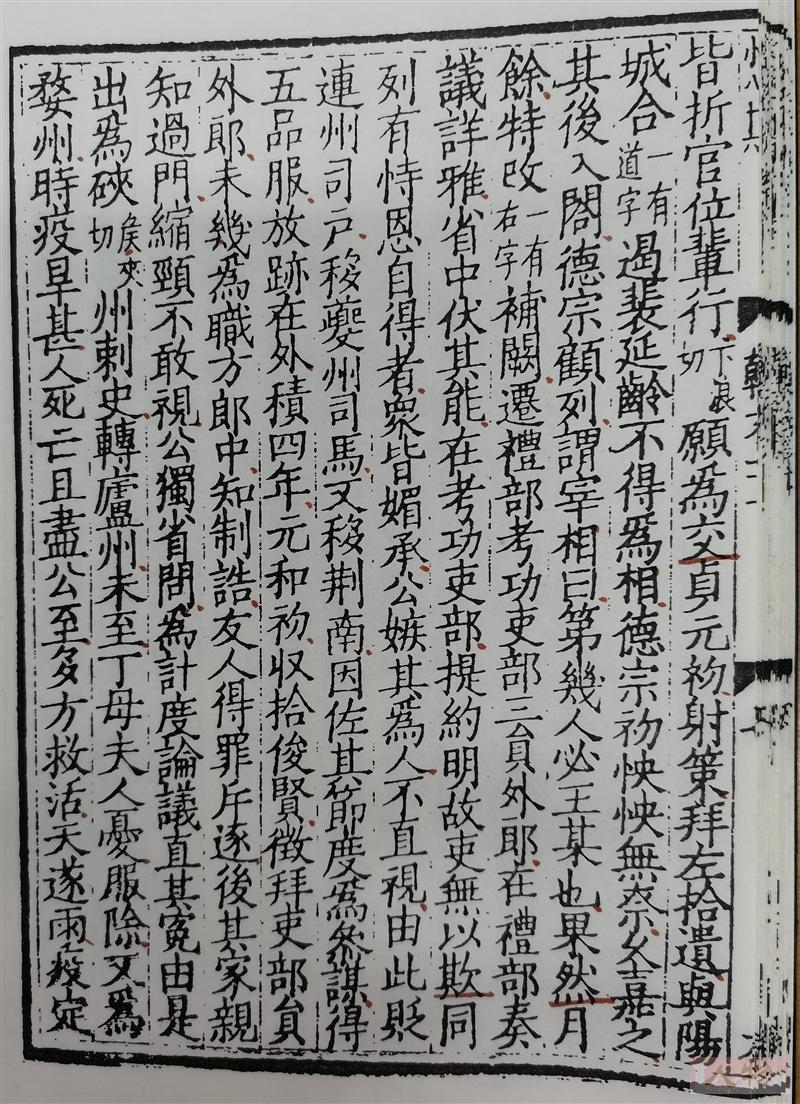 皆折官位輩行下浪切願爲交貞元初射策拜左拾遺與陽
城合一有道字遏裴延齡不得爲相德宗初怏怏無奈久嘉之
其後入閤德宗顧列謂宰相曰第幾人必王某也果然月
餘特改一有右字補闕遷禮部考功吏部三員外郎在禮部奏
議詳雅省中伏其能在考功吏部提約明故吏無以欺同
列有恃恩自得者衆皆媚承公嫉其爲人不直視由此貶
連州司戶移夔州司馬又移荆南因佐其節度爲叅謀得
五品服放跡在外積四年元和初収拾俊賢徴拜吏部員
外郎未幾爲職方郎中知制誥友人得罪斥逐後其家親
知過門縮頸不敢視公獨省問爲計度論議直其寃由是
出爲硤矦夾切州刺史轉廬州未至丁母夫人憂服除又爲
婺州時疫旱甚人死亡且盡公至多方救活天遂雨疫定